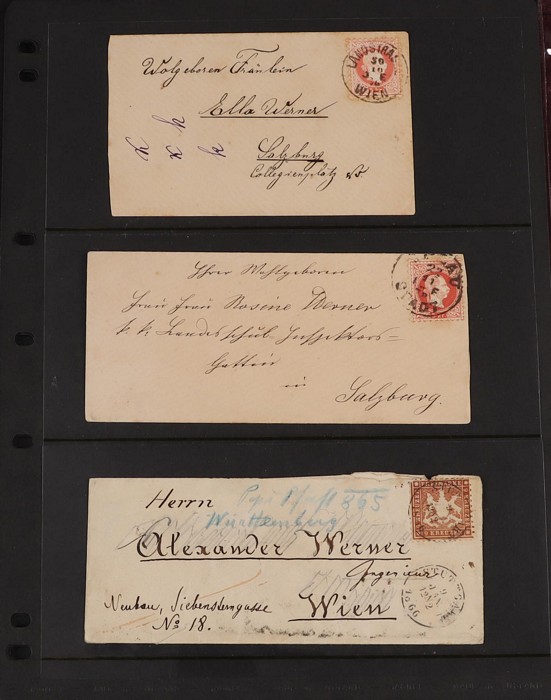 Wolgeboren Fräulein
Ella Werner
Salzburg
Collegienplatz
LANDSTRAS
30
10
WIEN
Ihrer Wohlgeboren
Frau Frau Rosine Werner
k. k. Landesschul-Inspektors=
Gattin
in
Salzburg.
STADT
Herrn
Württemberg
Alexander Werner
Ingenieur
Neubau, Siebensterngasse
Wien
No 18.
1866